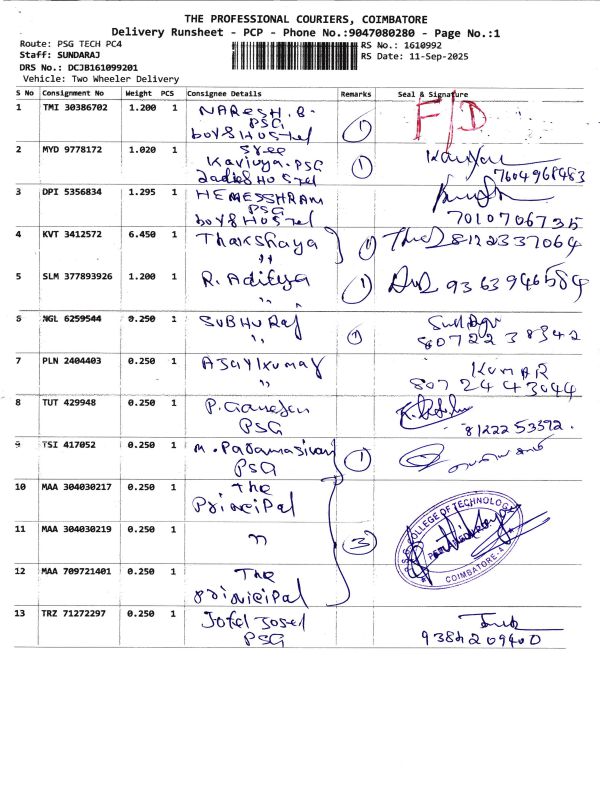 THE PROFESSIONAL COURIERS, COIMBATORE
Delivery Runsheet - PCP - Phone No.:9047080280 - Page No.:1
Route: PSG TECH PC4 RS No.: 1610992
Staff: SUNDARAJ RS Date: 11-Sep-2025
DRS No.: DCJB161099201
Vehicle: Two Wheeler Delivery
S No Consignment No Weight PCS Consignee Details Remarks Seal & Signature
1 TMI 30386702 1.200 1 NARESH. B. F/D
PSG
boys HOSTEL 1
2 MYD 9778172 1.020 1 Sree
Kaviya. PSG 1
Ladies HOSTEL 7604968483
3 DPI 5356834 1.295 1 HEMESSHRAM
PSG
boys HOSTEL 7010706735
4 KVT 3412572 6.450 1 Thakshaya 1 8122337064
"
5 SLM 377893926 1.200 1 R. Aditya 1 9363946584
"
6 NGL 6259544 0.250 1 SUBHU Raj
1 80722 38342
7 PLN 2404403 0.250 1 AJAYIKUMAR KUMAR
" 807 24 43044
8 TUT 429948 0.250 1 P. Ganesan
PSG 81222 53592.
9 TSI 417052 0.250 1 M. Paramasivan 1
PSG
10 MAA 304030217 0.250 1 The
Principal P.S.G. COLLEGE OF TECHNOLOGY
11 MAA 304030219 0.250 1 " 3
COIMBATORE-4
12 MAA 709721401 0.250 1 The
Principal
13 TRZ 71272297 0.250 1 Jofel Josel
PSG 9384209400